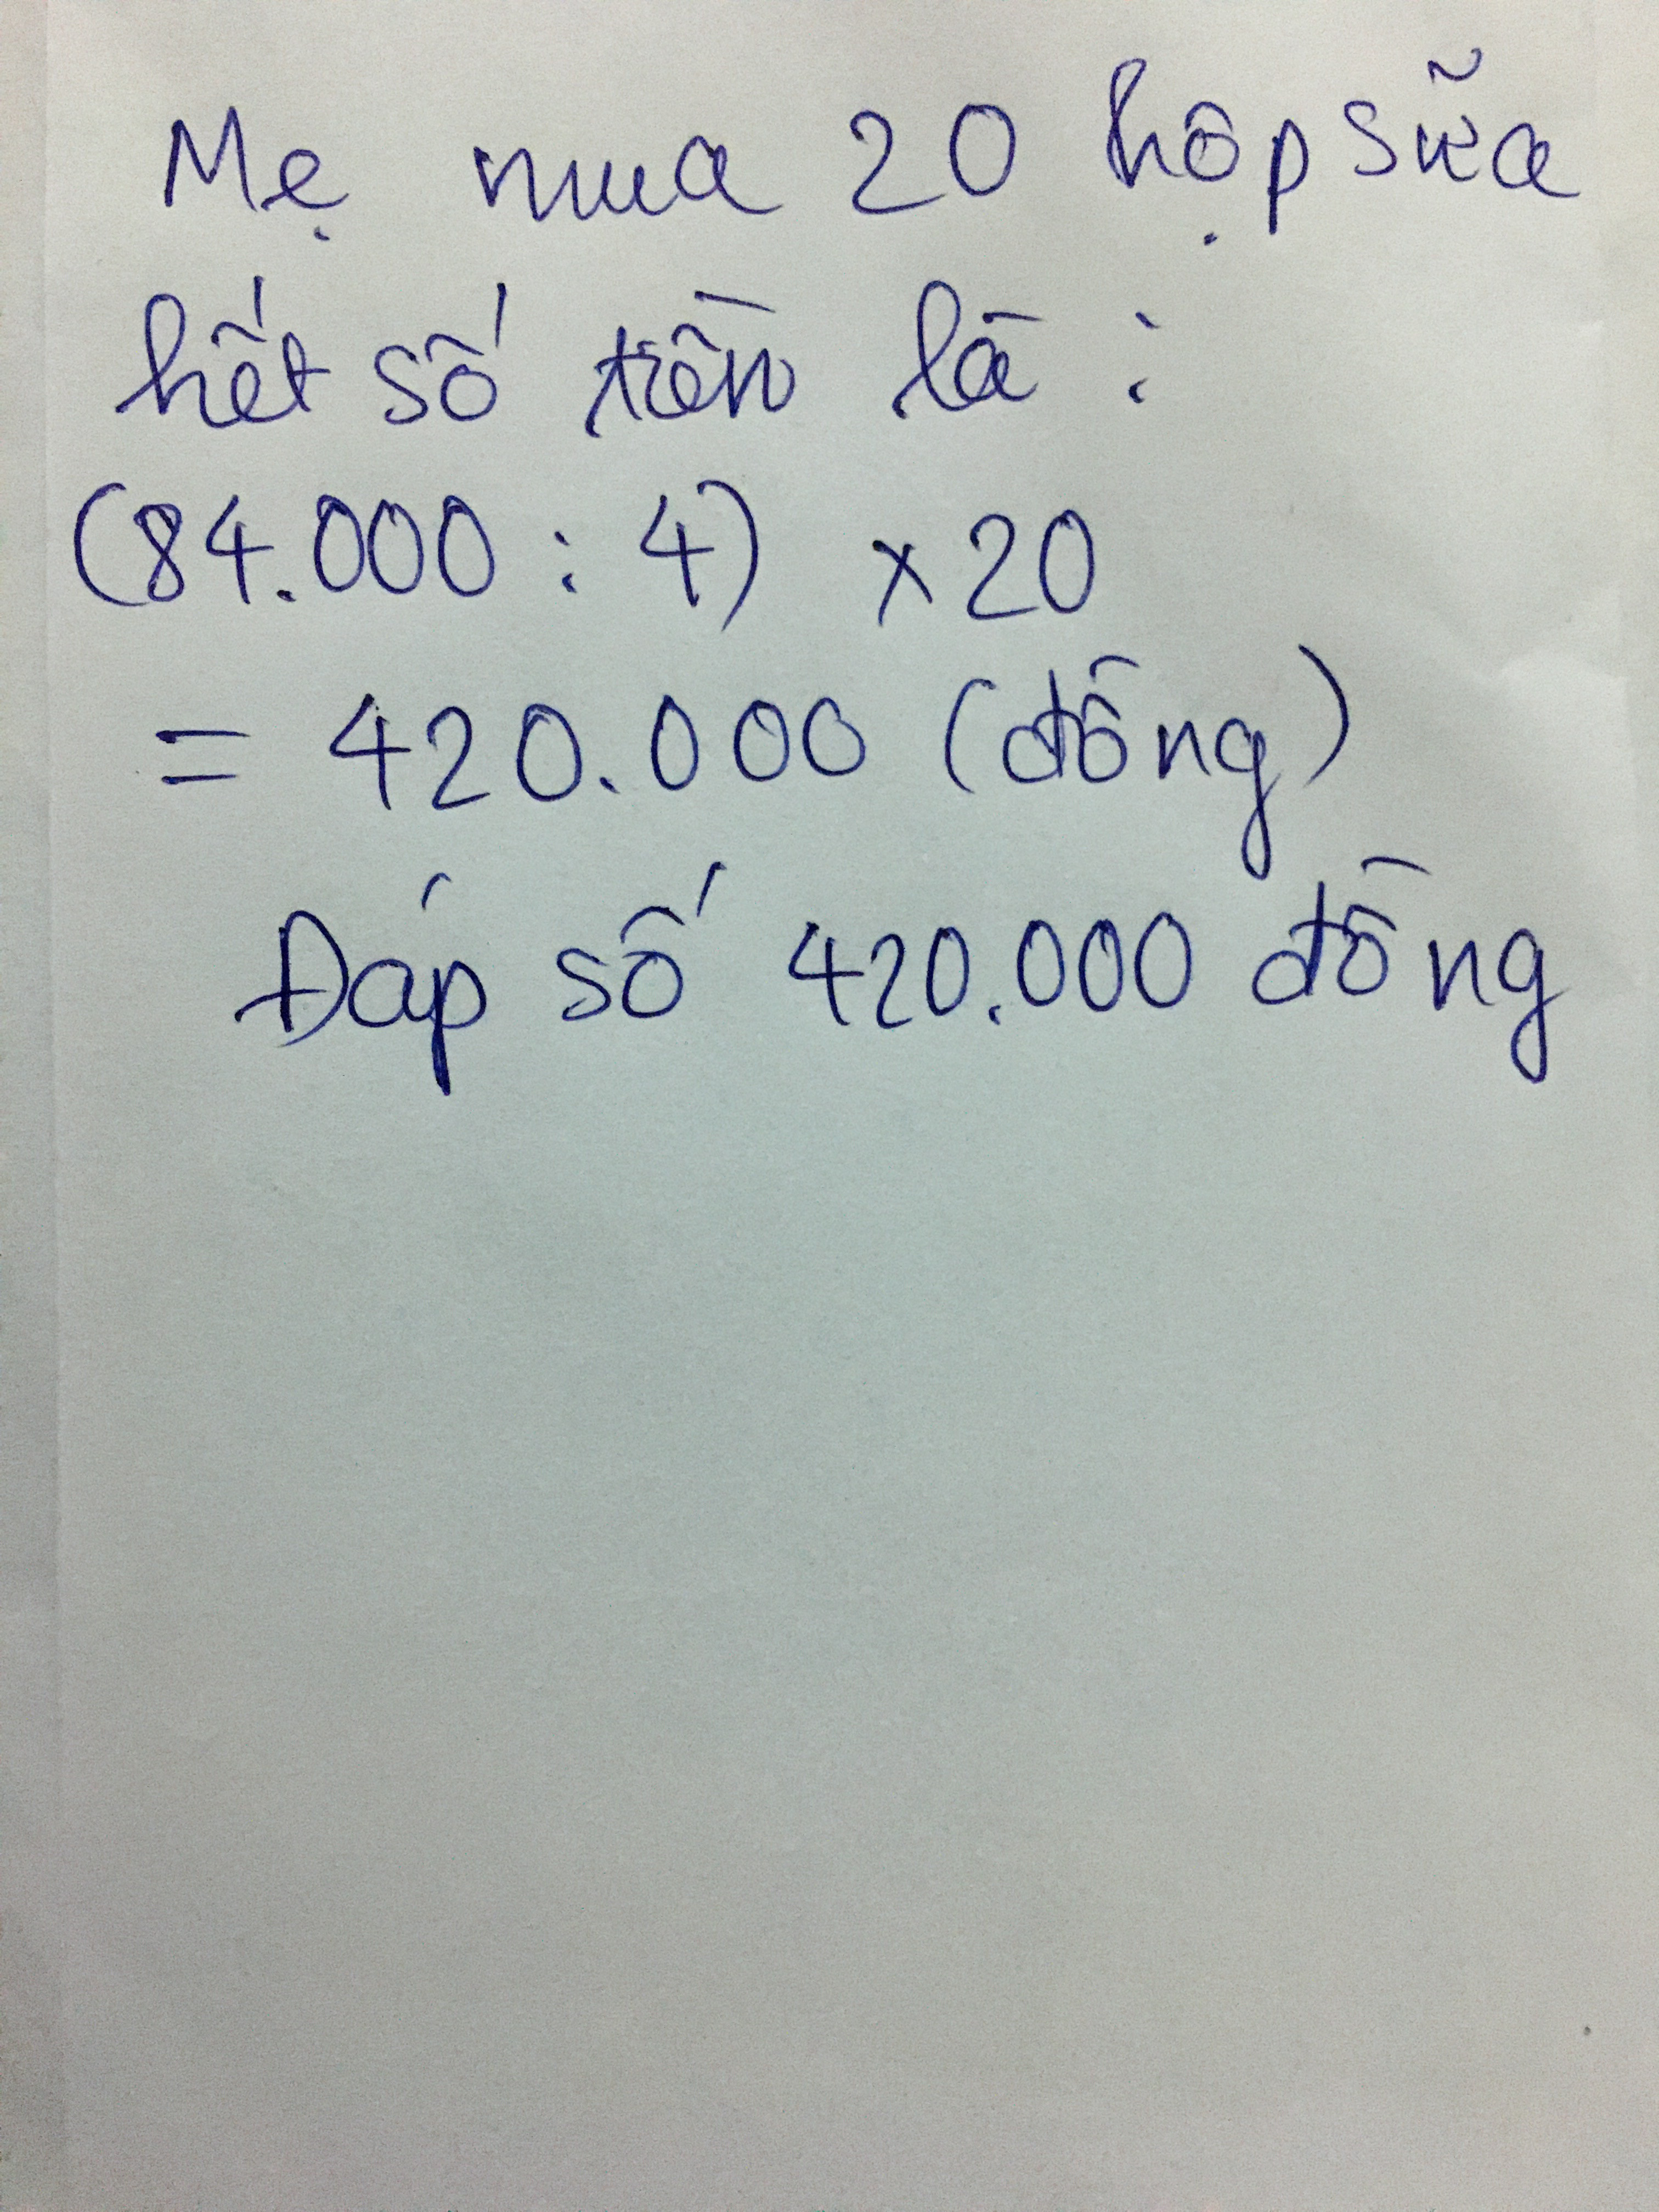 Mẹ mua 20 hộp sữa
hết số tiền là :
(84.000 : 4) x 20
= 420.000 (đồng)
Đáp số 420.000 đồng